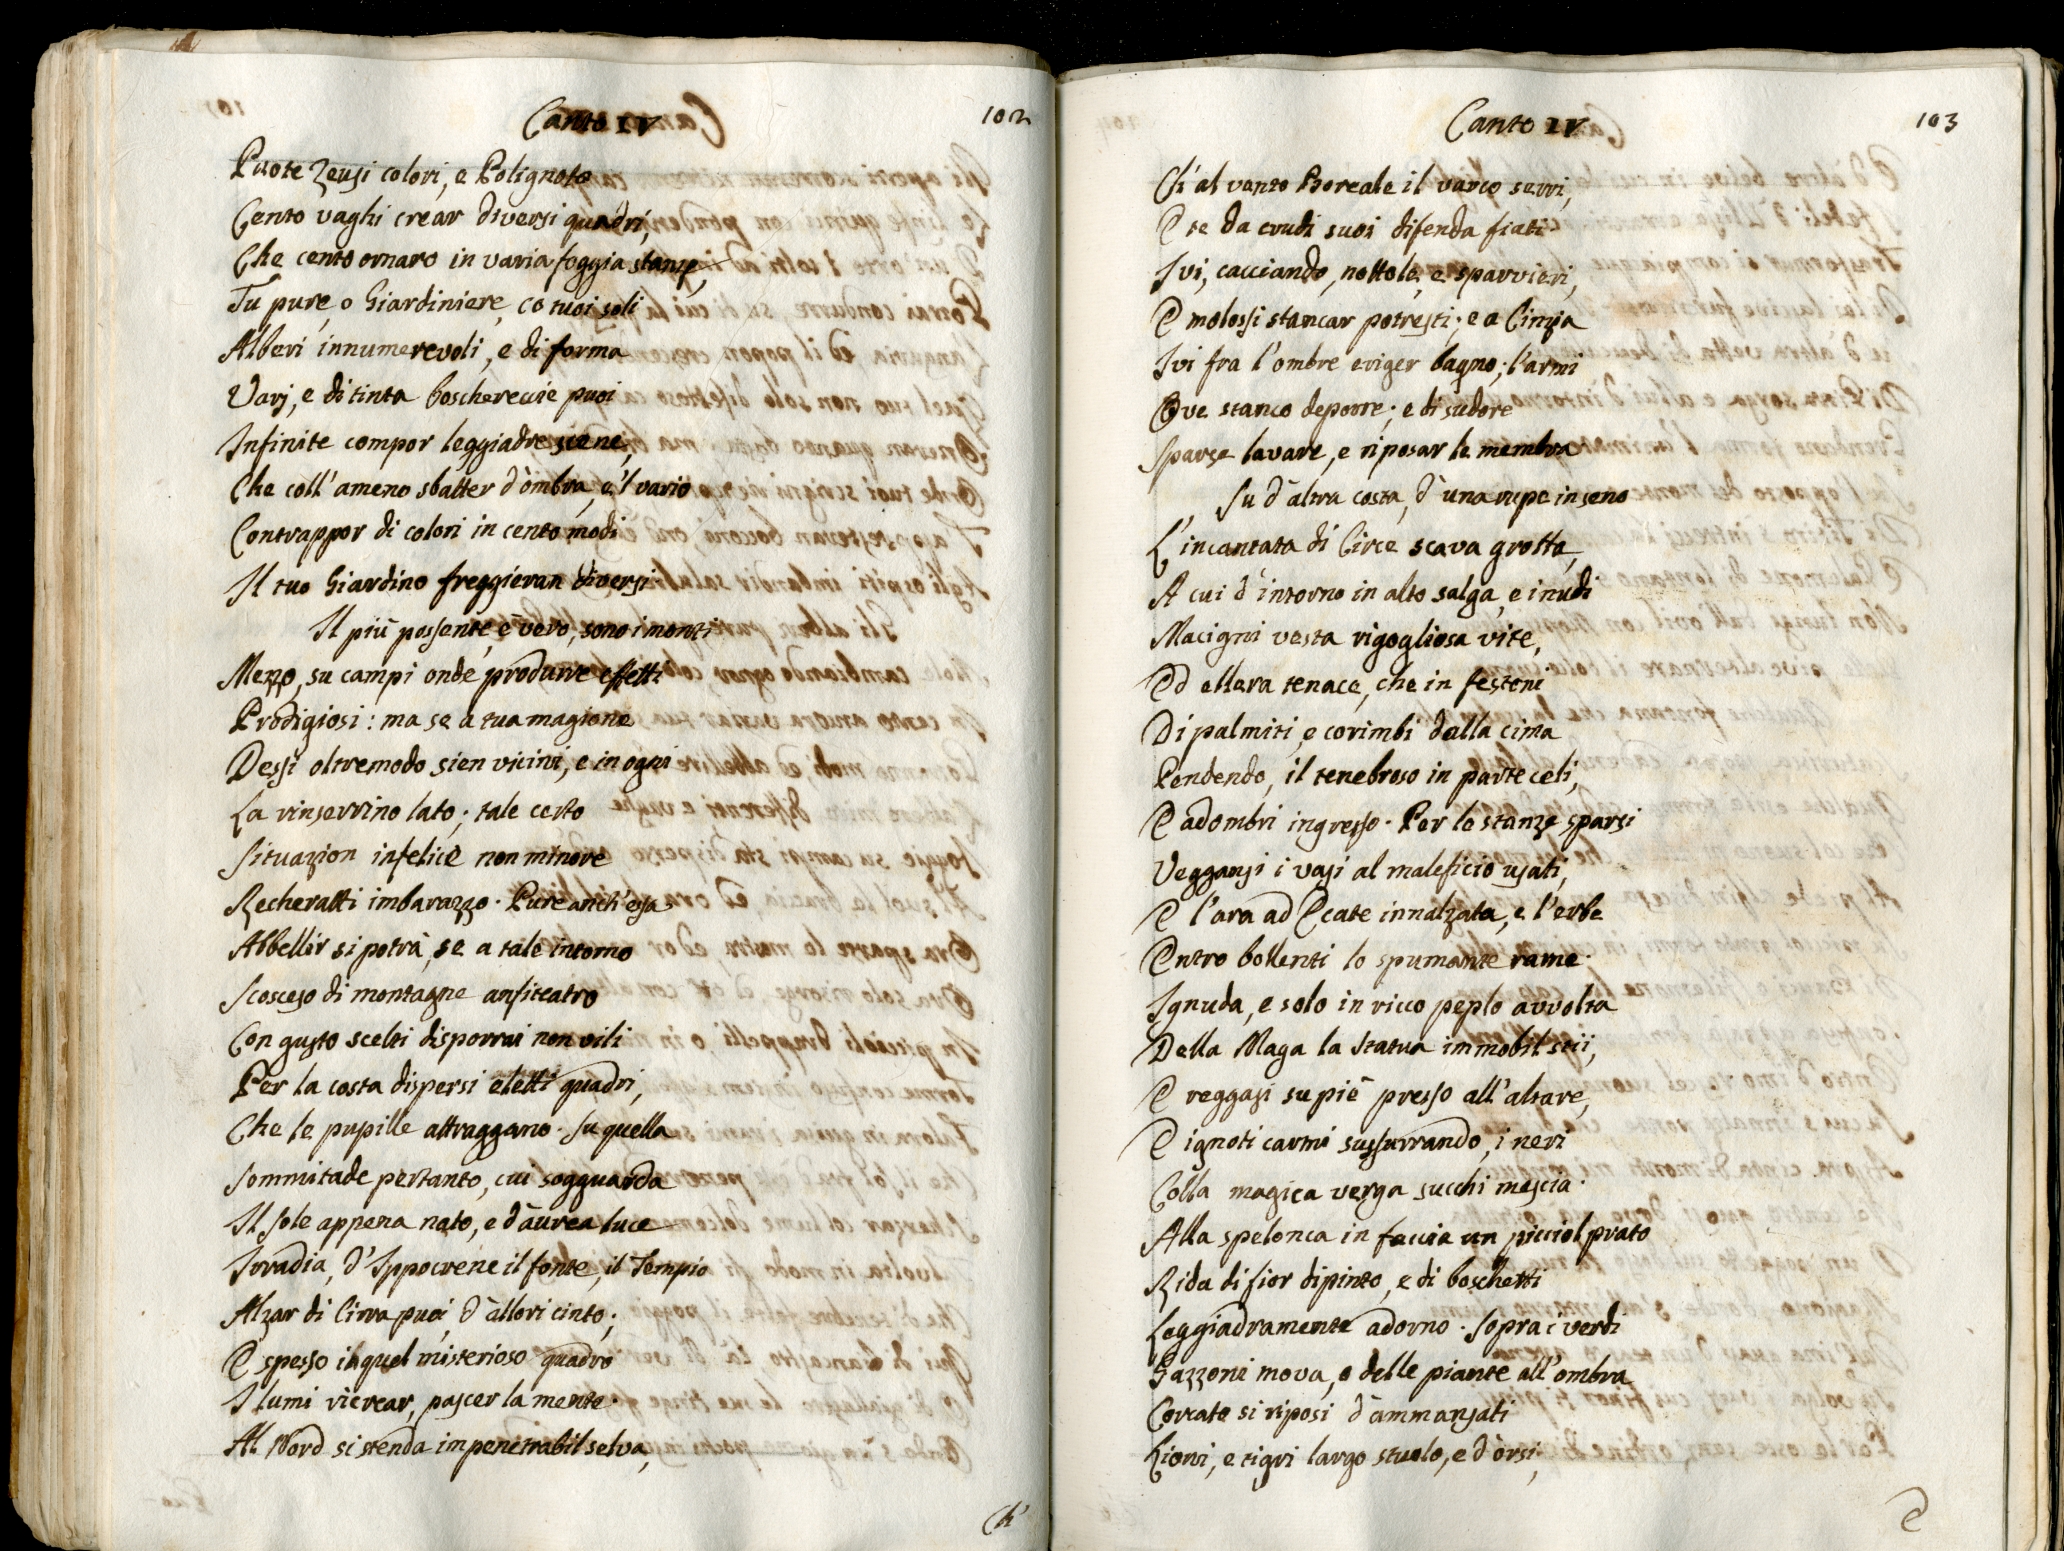 Canto IV
102
Puote Zeusi colori, e Polignoto
Cento vaghi crear diversi quadri,
Che cento ornaro in varia foggia stanze,
Tu pure, o Giardiniere, co tuoi soli
Alberi innumerevoli, e di forma
Varj, e di tinta boscherecc̄ie puoi
Infinite compor leggiadre scene,
Che coll'ameno sbatter d'ombra, e 'l vario
Contrappor di colori in cento modi
Il tuo Giardino freggieran diversi.
Il più possente, è vero, sono i monti
Mezzo, su campi onde produrre effetti
Prodigiosi: ma se a tua magione
Dessi oltremodo sien vicini, e in ogni
La rinserrino lato; tale certo
Situazion infelice non minore
Recheratti imbarazzo. Pure anch'essa
Abbellir si potrà, se a tale intorno
Scosceso di montagne anfiteatro
Con gusto scelti disporrai non vili
Per la costa dispersi eletti quadri,
Che le pupille attraggano. Su quella
Sommitade pertanto, cui sogguarda
Il sole appena nato, e d'aurea luce
Irradia, d'Ippocrene il fonte, il Tempio
Alzar di Cirra puoi d'allori cinto;
E spesso in quel misterioso quadro
I lumi ricrear, pascer la mente.
Al Nord si stenda impenetrabil selva,
Ch'
Canto IV
103
Ch'al vento Boreale il varco serri,
E te da crudi suoi difenda fiati
Ivi, cacciando, nottole, e sparvieri,
E molossi stancar potresti; e a Cinzia
Ivi fra l'ombre eriger bagno; l'armi
Ove stanco deporre; e di sudore
Sparse lavare, e riposar le membra
Su d'altra costa, d'una rupe in seno
L'incantata di Circe scava grotta,
A cui d'intorno in alto salga, e i nudi
Macigni vesta rigogliosa vite,
Ed ellera tenace, che in festoni
Di palmiti, e corimbi dalla cima
Pendendo, il tenebroso in parte celi,
E adombri ingresso. Per le stanze sparsi
Veggansi i vasi al maleficio usati,
E l'ara ad Ecate innalzata, e l'erbe
Entro bollenti lo spumante rame.
Ignuda, e solo in ricco peplo avvolta
Della Maga la Statua immobil stii,
E reggasi su piè presso all'altare,
E ignoti carmi sussurrando, i neri
Colla magica verga succhi mescia.
Alla spelonca in faccia un picciol prato
Rida di fior dipinto, e di boschetti
Leggiadramente adorno. Sopra i verdi
Gazzoni mova, o delle piante all'ombra
Corcato si riposi d'ammansati
Lioni, e tigri largo stuolo, e d'orsi,
E